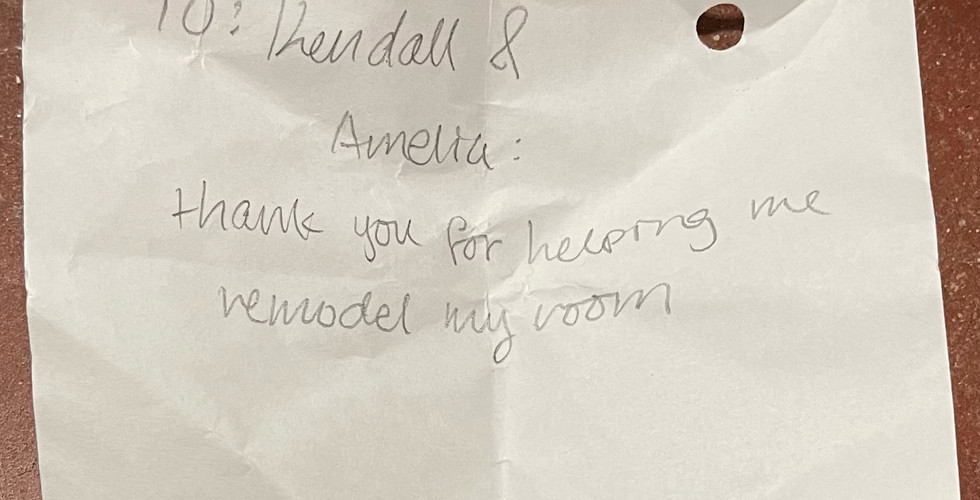 To: Kendall &
Amelia:
thank you for helping me
remodel my room